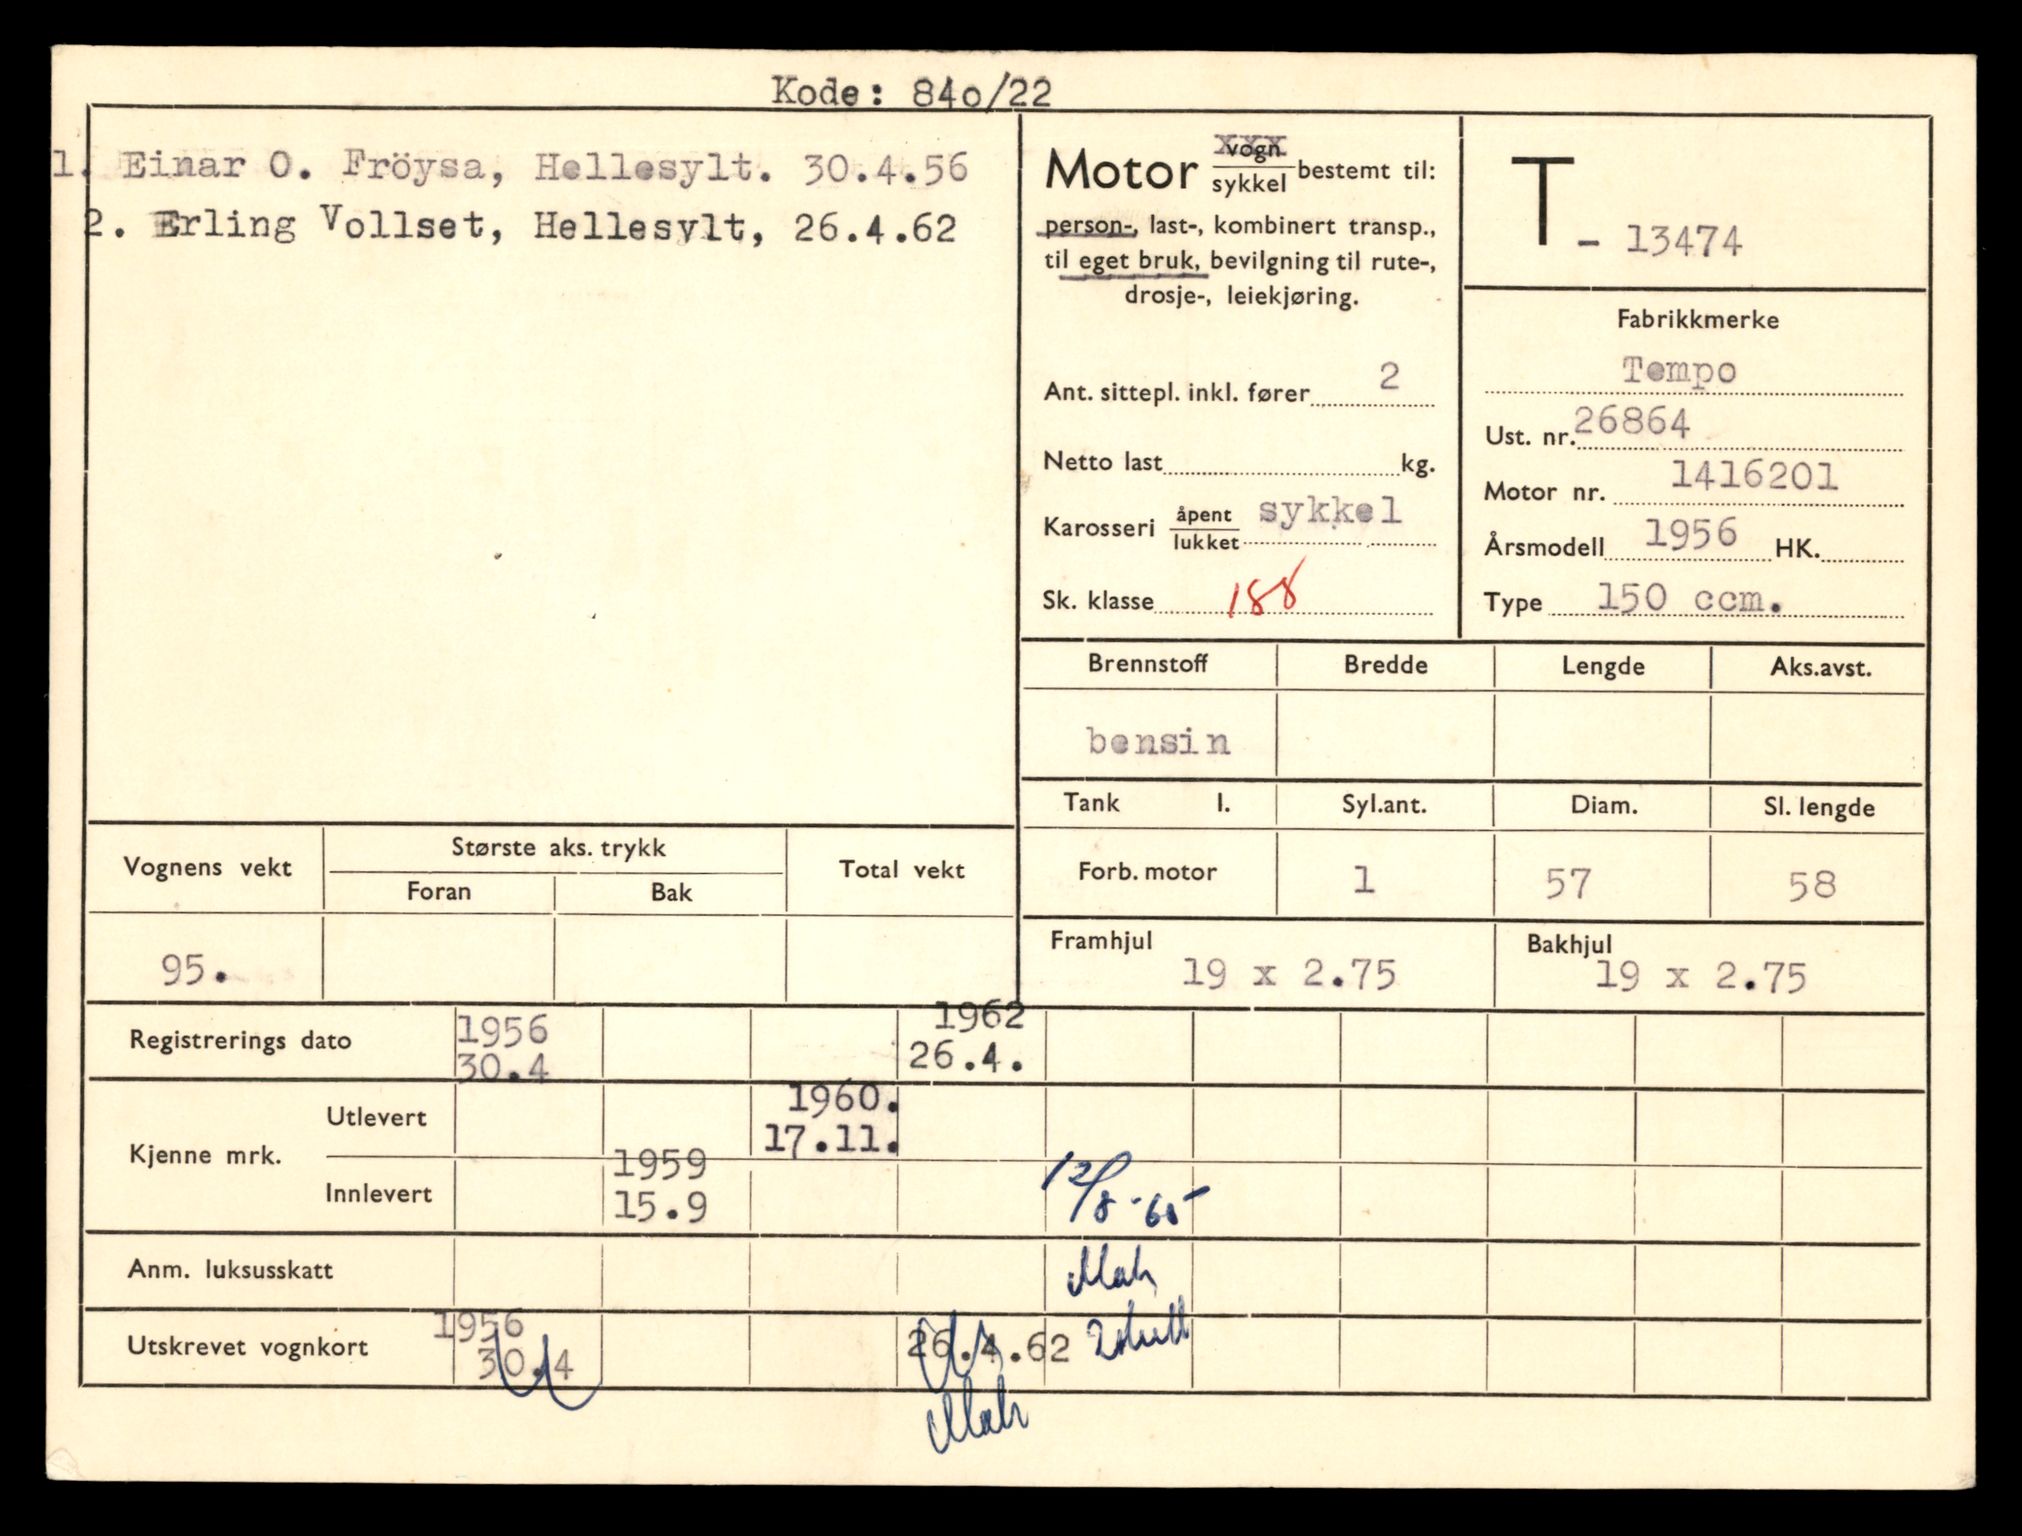 Kode: 840/22
1. Einar O. Fröysa, Hellesylt. 30.4.56
2. Erling Vollset, Hellesylt, 26.4.62
Motor vogn xxx
sykkel bestemt til:
person-, last-, kombinert transp.,
til eget bruk, bevilgning til rute-,
drosje-, leiekjøring.
Ant. sittepl. inkl. fører 2
Netto last kg.
Karosseri åpent sykkel
lukket
Sk. klasse 188
T - 13474
Fabrikkmerke
Tempo
Ust. nr. 26864
Motor nr. 1416201
Årsmodell 1956 HK.
Type 150 ccm.
Brennstoff Bredde Lengde Aks.avst.
bensin
Tank l. Syl.ant. Diam. Sl. lengde
Forb. motor 1 57 58
Framhjul 19 x 2.75
Bakhjul 19 x 2.75
Vognens vekt Største aks. trykk Total vekt
Foran Bak
95.
Registrerings dato 1956 1962
30.4 26.4.
Kjenne mrk. Utlevert 1960.
17.11.
Innlevert 1959
15.9
12/8-65
Anm. luksusskatt
Utskrevet vognkort 1956
30.4 26.4.62